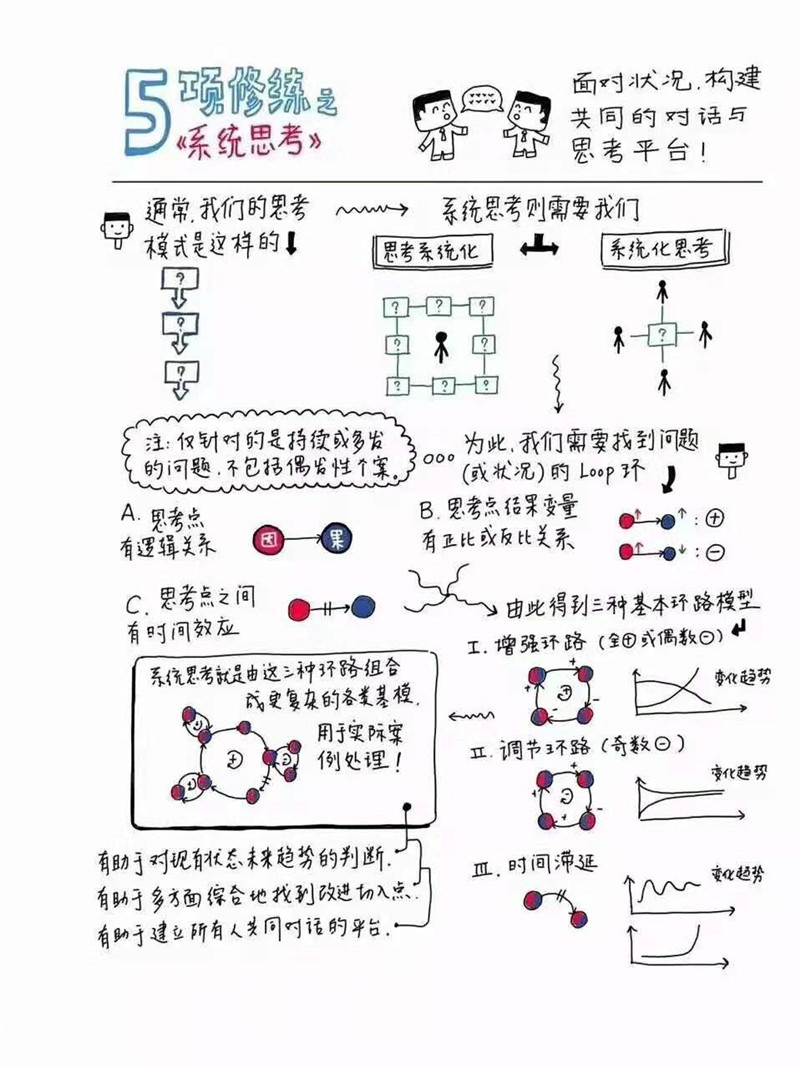 5项修练之
《系统思考》
面对状况,构建
共同的对话与
思考平台!
通常,我们的思考
模式是这样的
系统思考则需要我们
思考系统化
系统化思考
?
?
?
? ? ?
? ?
? ? ?
?
注:仅针对的是持续或多发
的问题,不包括偶发性个案。
为此,我们需要找到问题
(或状况)的Loop环
A. 思考点
有逻辑关系
因 果
B. 思考点结果变量
有正比或反比关系
↑ ↑ : ⊕
↑ ↓ : ⊖
C. 思考点之间
有时间效应
由此得到三种基本环路模型
I. 增强环路(全⊕或偶数⊖)
+ + - - +
变化趋势
系统思考就是由这三种环路组合
成更复杂的各类基模.
用于实际案
例处理!
+
II. 调节环路(奇数⊖)
+ + + - -
变化趋势
III. 时间滞延
变化趋势
有助于对现有状态未来趋势的判断.
有助于多方面综合地找到改进切入点.
有助于建立所有人共同对话的平台.